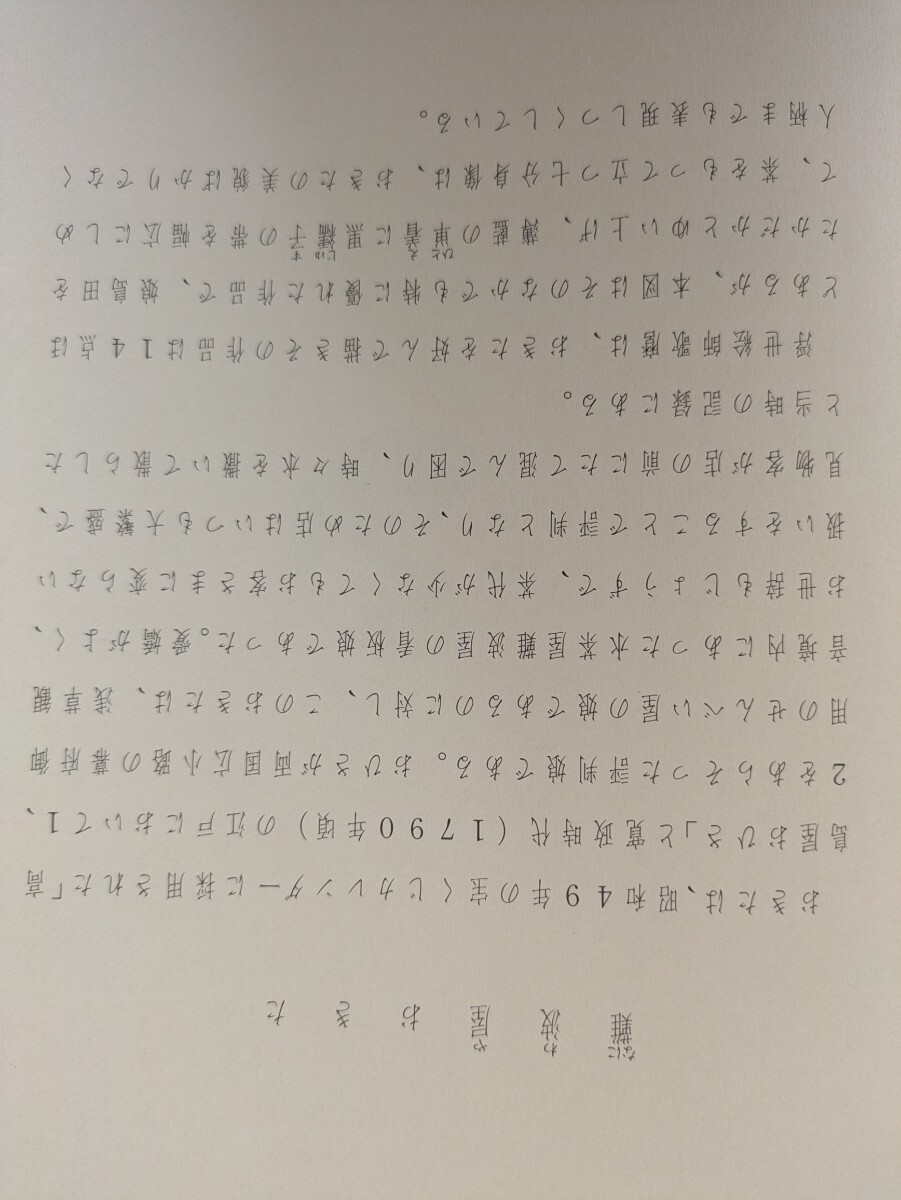 難波屋おきた
なに わ や
おきたは、昭和49年の宝くじカレンダーに採用された「高
島屋おひさ」と寛政時代（1790年頃）の江戸において1、
2をあらそった評判娘である。おひさが両国広小路の幕府御
用のせんべい屋の娘であるのに対し、このおきたは、浅草観
音境内にあった水茶屋難波屋の看板娘であった。愛嬌がよく、
お世辞もじょうずで、茶代が少なくてもお客さまに変らない
扱いをすることで評判となり、そのため店はいつも大繁盛で、
見物客が店の前にたて混んで困り、時々水を撒いて散らした
と当時の記録にある。
浮世絵師歌麿は、おきたを好んで描きその作品は14点ほ
どあるが、本図はそのなかでも特に優れた作品で、娘島田を
たかだかとゆい上げ、薄藍の単着に黒繻子の帯を幅広にしめ
ひとえ しゅす
て、茶をもって立つ七分身像は、おきたの美貌ばかりでなく
人柄までも表現しつくしている。